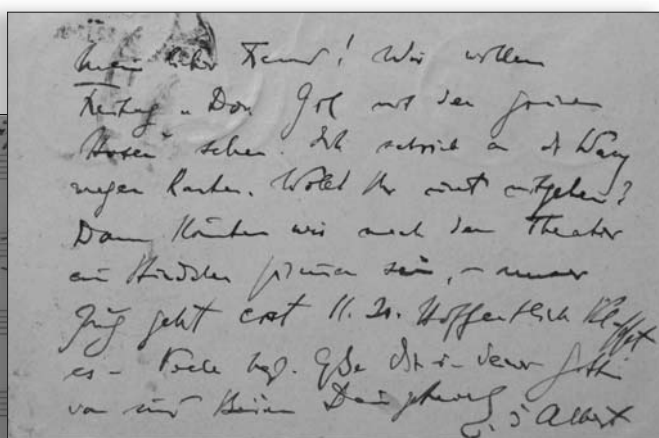 Mein lieber Freund! Wir wollen
Freitag „Don Gil mit den grünen
Hosen" sehen. Ich schrieb an
wegen Karten. Wollt Ihr nicht mitgehen?
Dann könnten wir nach dem Theater
ein Stündchen zusammen sein, – unser
Zug geht erst 11.20. Hoffentlich klappt
es – Viele herzl. Grüße Dir u. Deiner Gattin
von mir
Albert